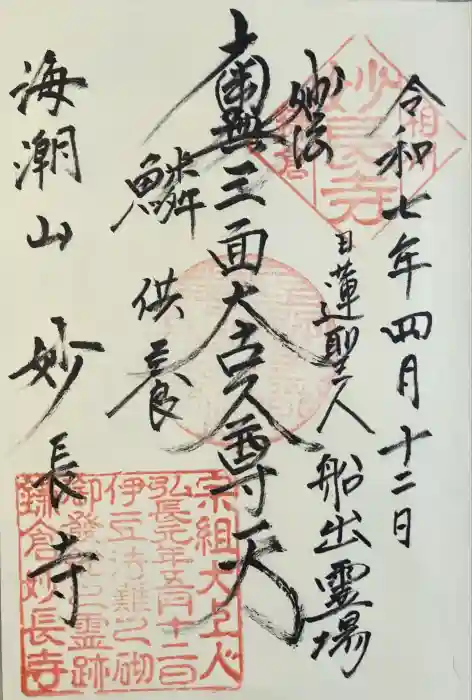 令和七年四月十二日
日蓮聖人 船出霊場
妙法
三面大古久尊天
鱗供養
海潮山 妙長寺
相州
妙長寺
鎌倉
宗祖大上人
弘長元年五月十二日
伊豆法難之砌
御發之霊跡
鎌倉妙長寺